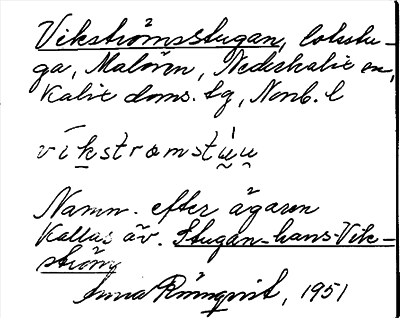 Vikströmsstugan, lotsstu-
ga, Malören, Nederkalix sn,
Kalix doms. tg, Norrb. l
vikstrømstụ̀ụ
Namn. efter ägaren
Kallas äv. Stugan-hans Vik-
ström
Anna Rönnqvist, 1951